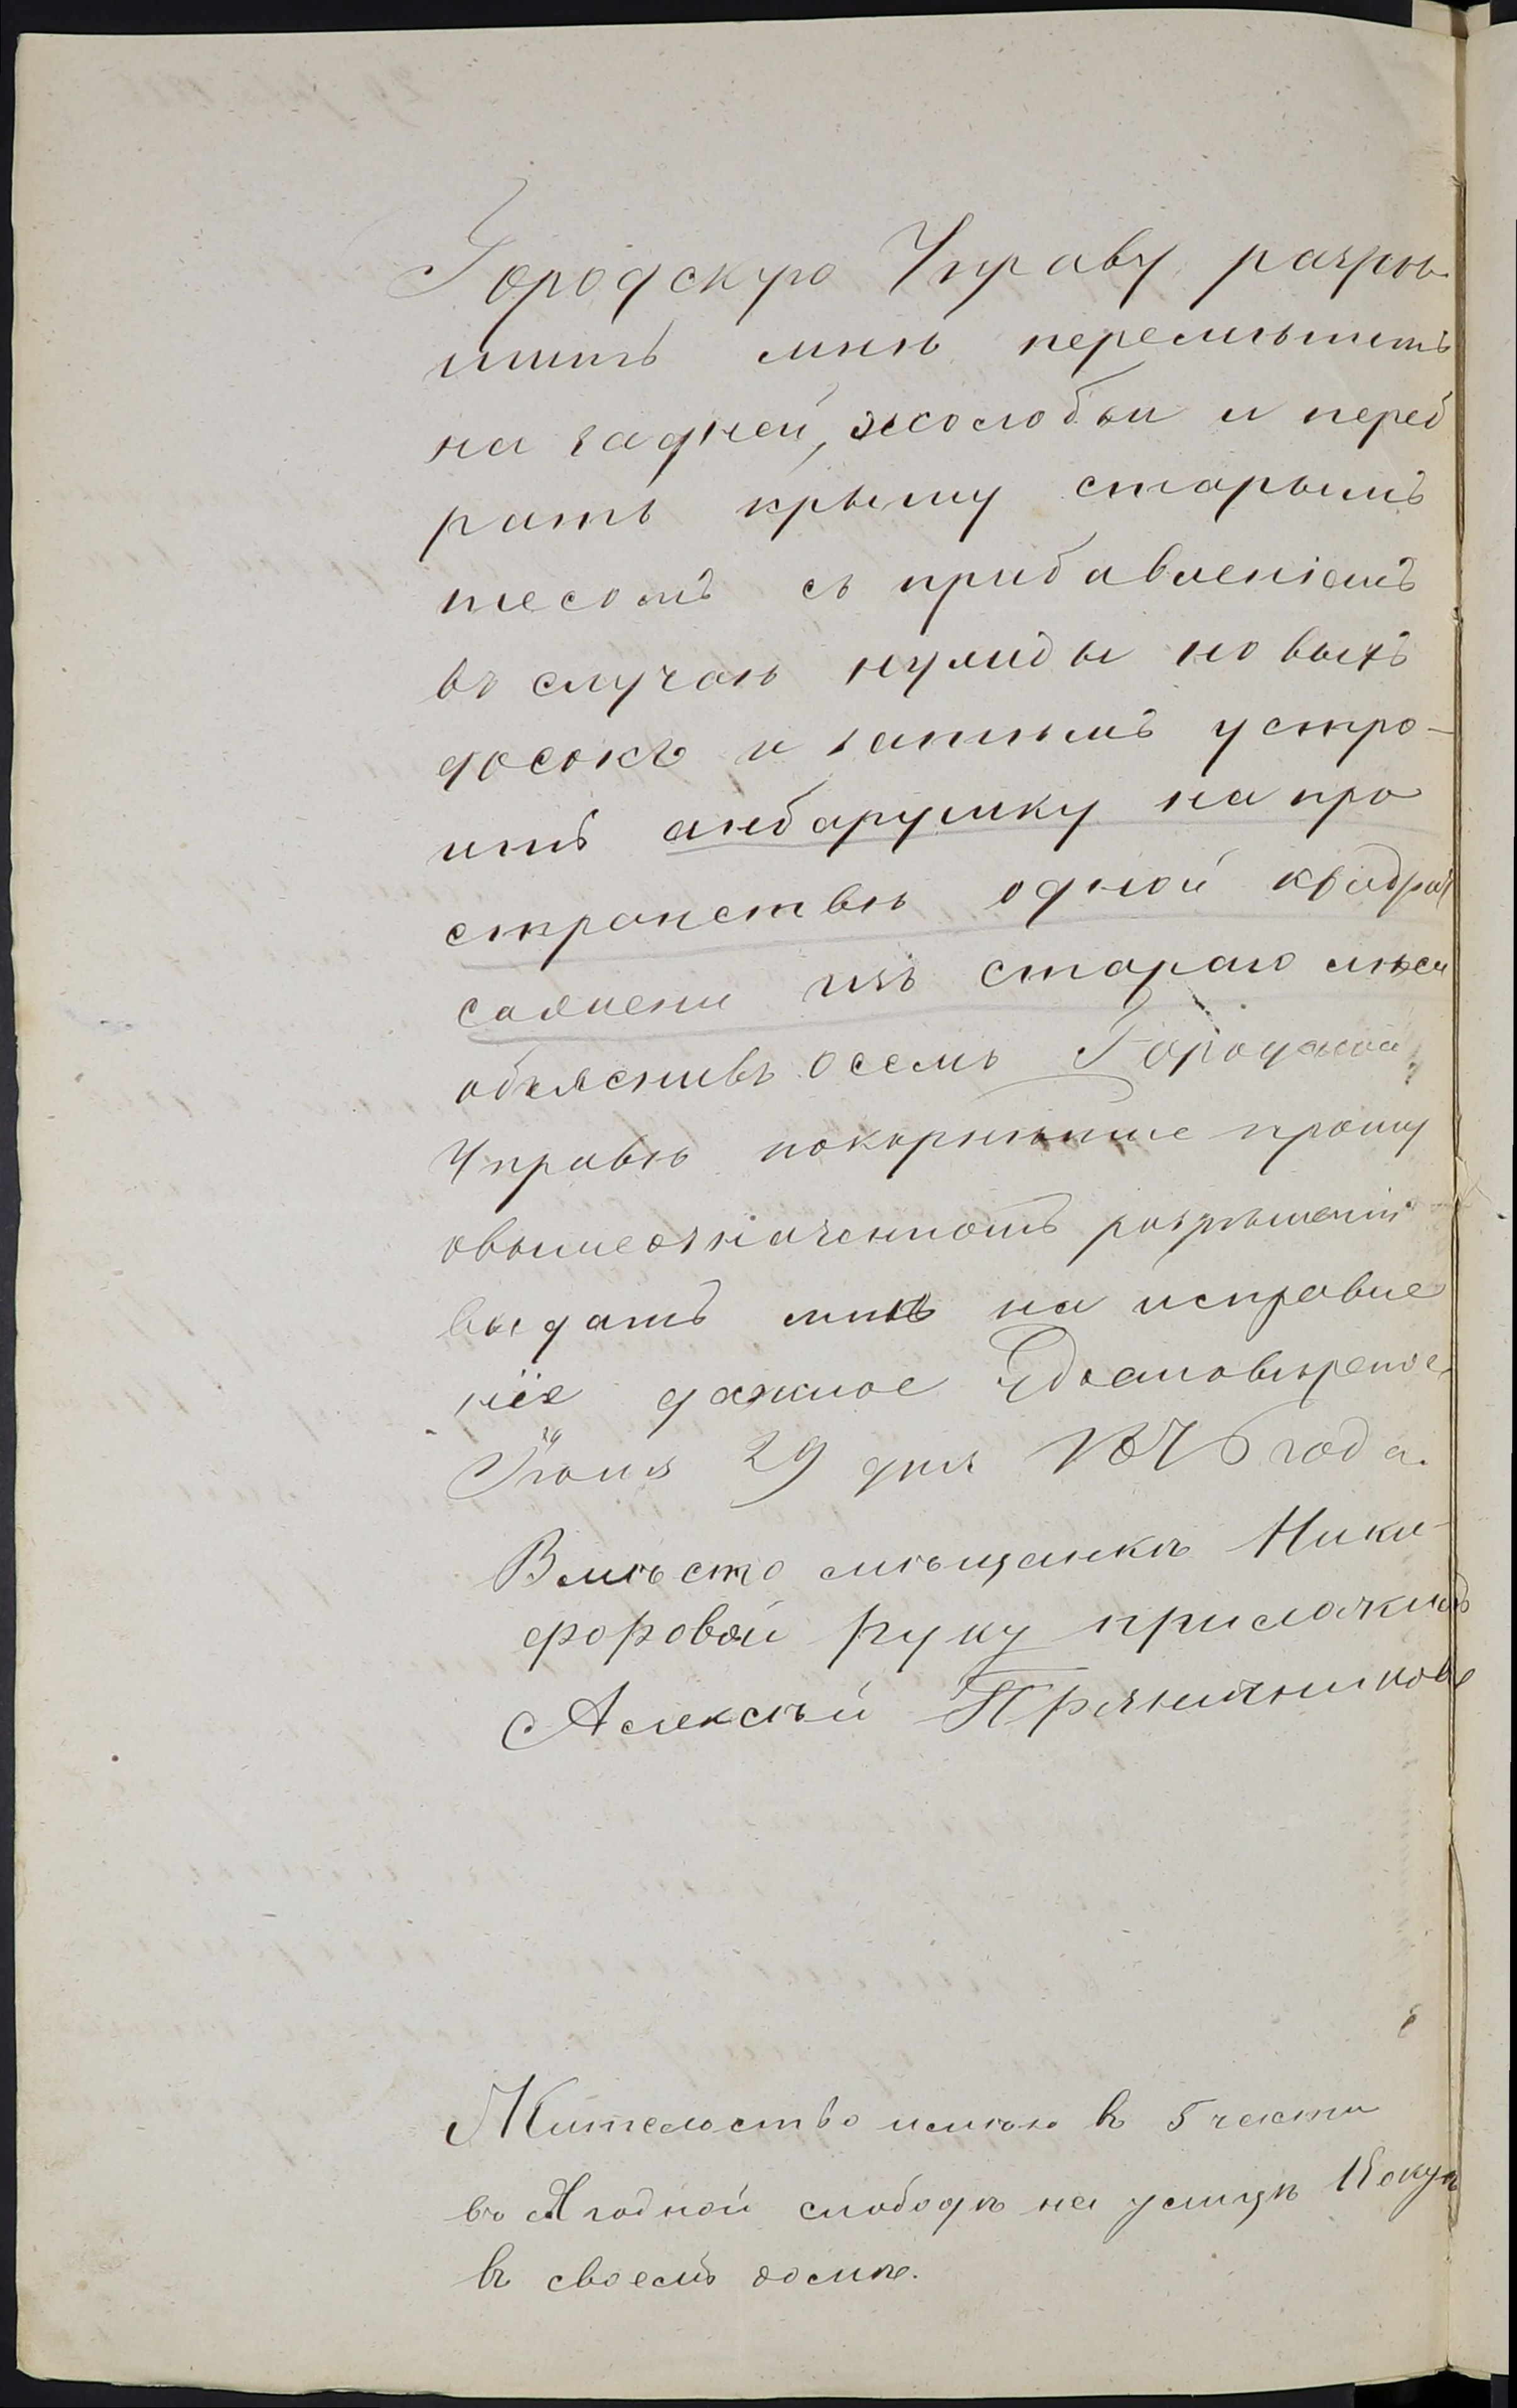 Городскую Управу, разрѣ
шить мнѣ перемѣтить
на задней, жолобьи и переб
рать крышу старымъ
тесомъ съ прибавленіемъ
въ случаѣ нужды новыхъ
досокъ и затѣмъ устро-
ить анбарушку на про
странствѣ одной квадрат
сажени изъ стараго лѣса
объяснивъ осемъ Городской
Управѣ покорнѣйше прошу
овышеозначенномъ разрѣшеніи
выдать мнѣ на исправле
ніе должное Удостовѣреніе
Іюня 29 дня 1876 года.
Вмѣсто мѣщанки Ники-
форовой руку приложилъ
Алексѣй Пряничниковъ
Жительство имѣю въ 5 части
въ Ягодной слободѣ на улицѣ Кокуѣ
въ своемъ домѣ.